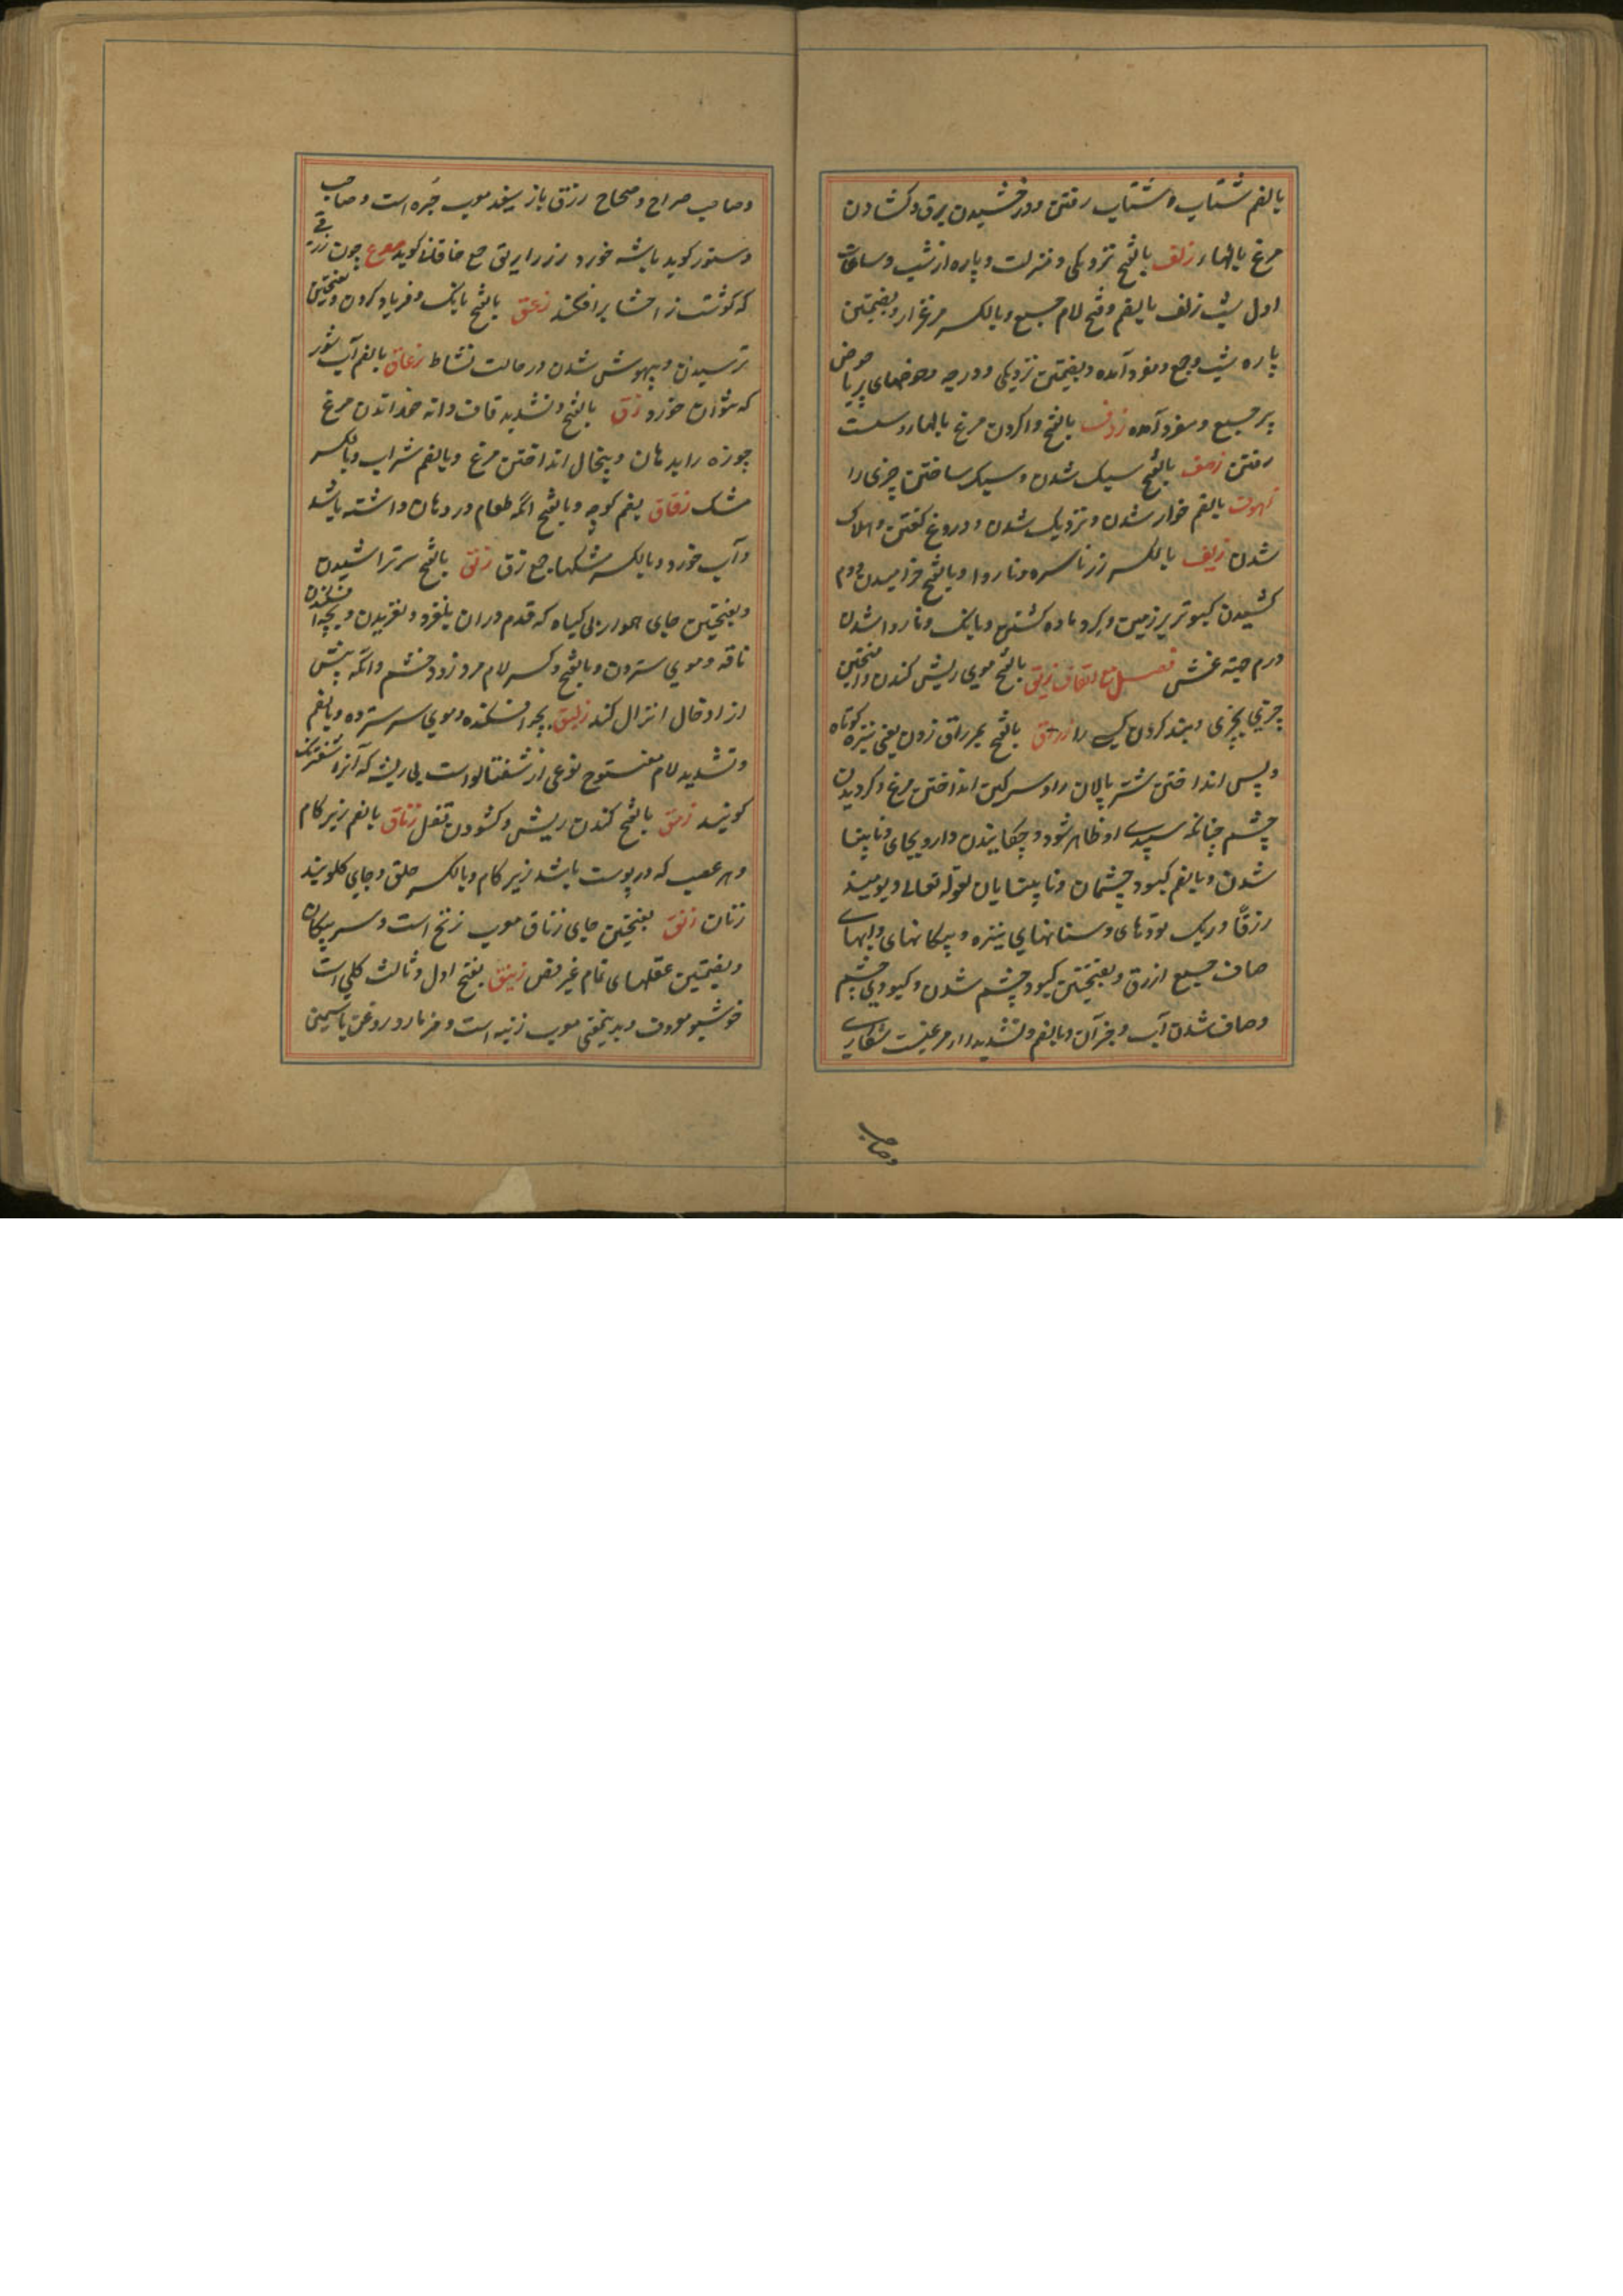 بالضم شتاب و شتاب رفتن و درخشیدن برق و کشادن
مرغ بالها را زلف بالفتح نزدیکی و منزلت و پاره از شب و ساعات
اول شب زلف بالضم و فتح لام جمع و بالکسر مرغزار و بضمتین
پاره شب و جمع و مفرد آمده و بضمتین نزدیکی و درجه و حوضهای پر یا حوض
پر جمع و مفرد آمده زوف بالفتح واکردن مرغ بالها و سست
رفتن زهف بالفتح سبک شدن و سبک ساختن چیزی را
زهوف بالضم خوار شدن و نزدیک شدن و دروغ گفتن و هلاک
شدن زیف بالکسر زر ناسره و ناروا و بالفتح خرامیدن و دم
کشیدن کبوتر بر زمین و گرد ماده کشتن و بانک و ناروا شدن
درم جهة غش فصل مع القاف زبق بالفتح موی ریش کندن و آمیختن
چیزی بچیزی و بند کردن کسی را زرق بالفتح بمزراق زدن یعنی نیزه کوتاه
و پس انداختن شتر پالان را و سرکین انداختن مرغ و کردیدن
چشم چنانکه سپیدی او ظاهر شود و چکانیدن دارو بجای و نابینا
شدن و بالضم کبود چشمان و نابینایان لقوله تعالی و یومیذ
زرقًا و ریک تودهای و سنانهای نیزه و پیکانهای و آبهای
صاف جمع ازرق و بفتحتین کبود چشم شدن و کبودی چشم
و صاف شدن آب و جز آن و بالضم و تشدید را مرغیست شکاری
و صاحب
و صاحب صراح و صحاح زرق باز سفید معرب جره است و صاحب
دستور کوید باشه خورد زرزاریق جمع خاقانی کوید مصرع چون زرقی
که کوشت ز احشا برافکند زعق بالفتح بانک و فریاد کردن و بفتحتین
ترسیدن و بیهوش شدن در حالت نشاط زعاق بالضم آب شور
که نتوان خورد زق بالفتح و تشدید قاف دانه خوراندن مرغ
چوزه را بدهان و پیخال انداختن مرغ و بالضم شراب و بالکسر
مشک زقاق بضم کوچه و بالفتح آنکه طعام در دهان داشته باشد
و آب خورد و بالکسر مشکها جمع زق زلق بالفتح سر تراشیدن
و بفتحتین جای هموار بی کیاه که قدم دران بلغزد و لغزیدن و بچه افکندن
ناقه و موی ستردن و بالفتح و کسر لام مرد زود خشم و آنکه پیش
از ادخال انزال کند زلیق بچه افکنده و موی سر سترده و بالضم
و تشدید لام مفتوح نوعی از شفتالو است بی ریشه که آنرا شفترنک
کویند زمق بالفتح کندن ریش و کشودن قفل زناق بالضم زیر کام
و هر عصب که در پوست باشد زیر کام و بالکسر حلق و جای کلوبند
زنان زنق بفتحتین جای زناق معرب زنخ است و سر پیکان
و بضمتین عقلهای تمام غیر نقص زنبق بفتح اول و ثالث کلی است
خوشبو معروف و بدینمعنی معرب زنبه است و مزمار و روغن یاسمین